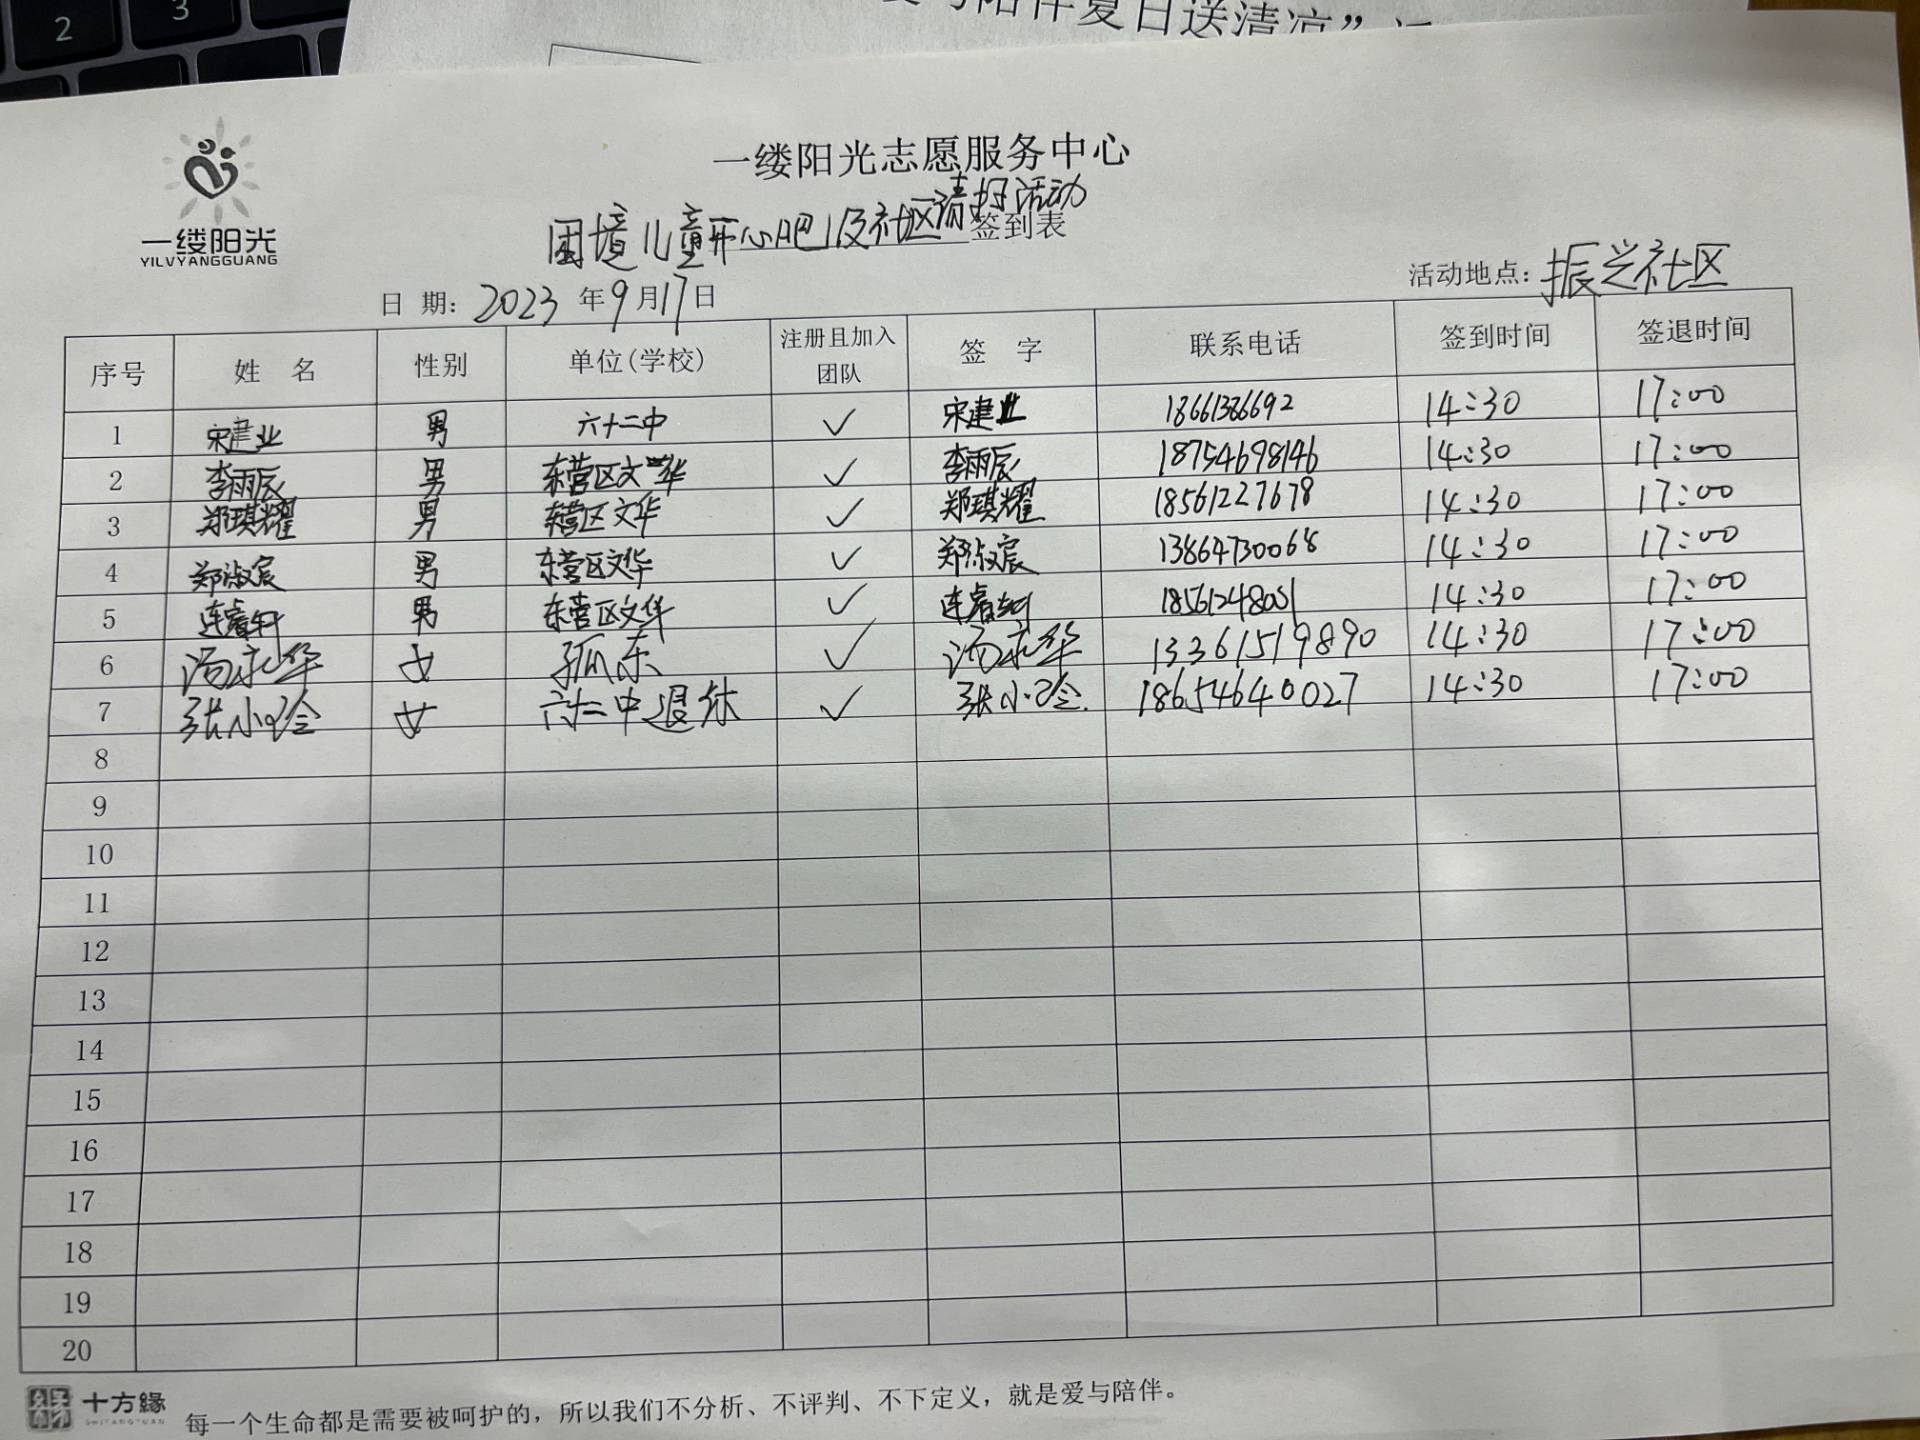 2
3
陪伴夏日送清凉”
一缕阳光
YILVYANGGUANG
一缕阳光志愿服务中心
困境儿童开心吧及社区清扫活动签到表
日 期: 2023 年 9 月 17 日 活动地点: 振兴社区
序号 姓 名 性别 单位(学校) 注册且加入团队 签 字 联系电话 签到时间 签退时间
1 宋建业 男 六十二中 ✓ 宋建业 14:30 17:00
2 李雨辰 男 东营区文华 ✓ 李雨辰 18754698146 14:30 17:00
3 郑琪耀 男 东营区文华 ✓ 郑琪耀 18561227678 14:30 17:00
4 郑淑宸 男 东营区文华 ✓ 郑淑宸 13864730068 14:30 17:00
5 连睿轩 男 东营区文华 ✓ 连睿轩 18561248051 14:30 17:00
6 汤永华 女 孤东 ✓ 汤永华 13361519890 14:30 17:00
7 张小玲 女 六十二中退休 ✓ 张小玲 18654640027 14:30 17:00
8
9
10
11
12
13
14
15
16
17
18
19
20
十方緣
SHIFANGYUAN
每一个生命都是需要被呵护的，所以我们不分析、不评判、不下定义，就是爱与陪伴。